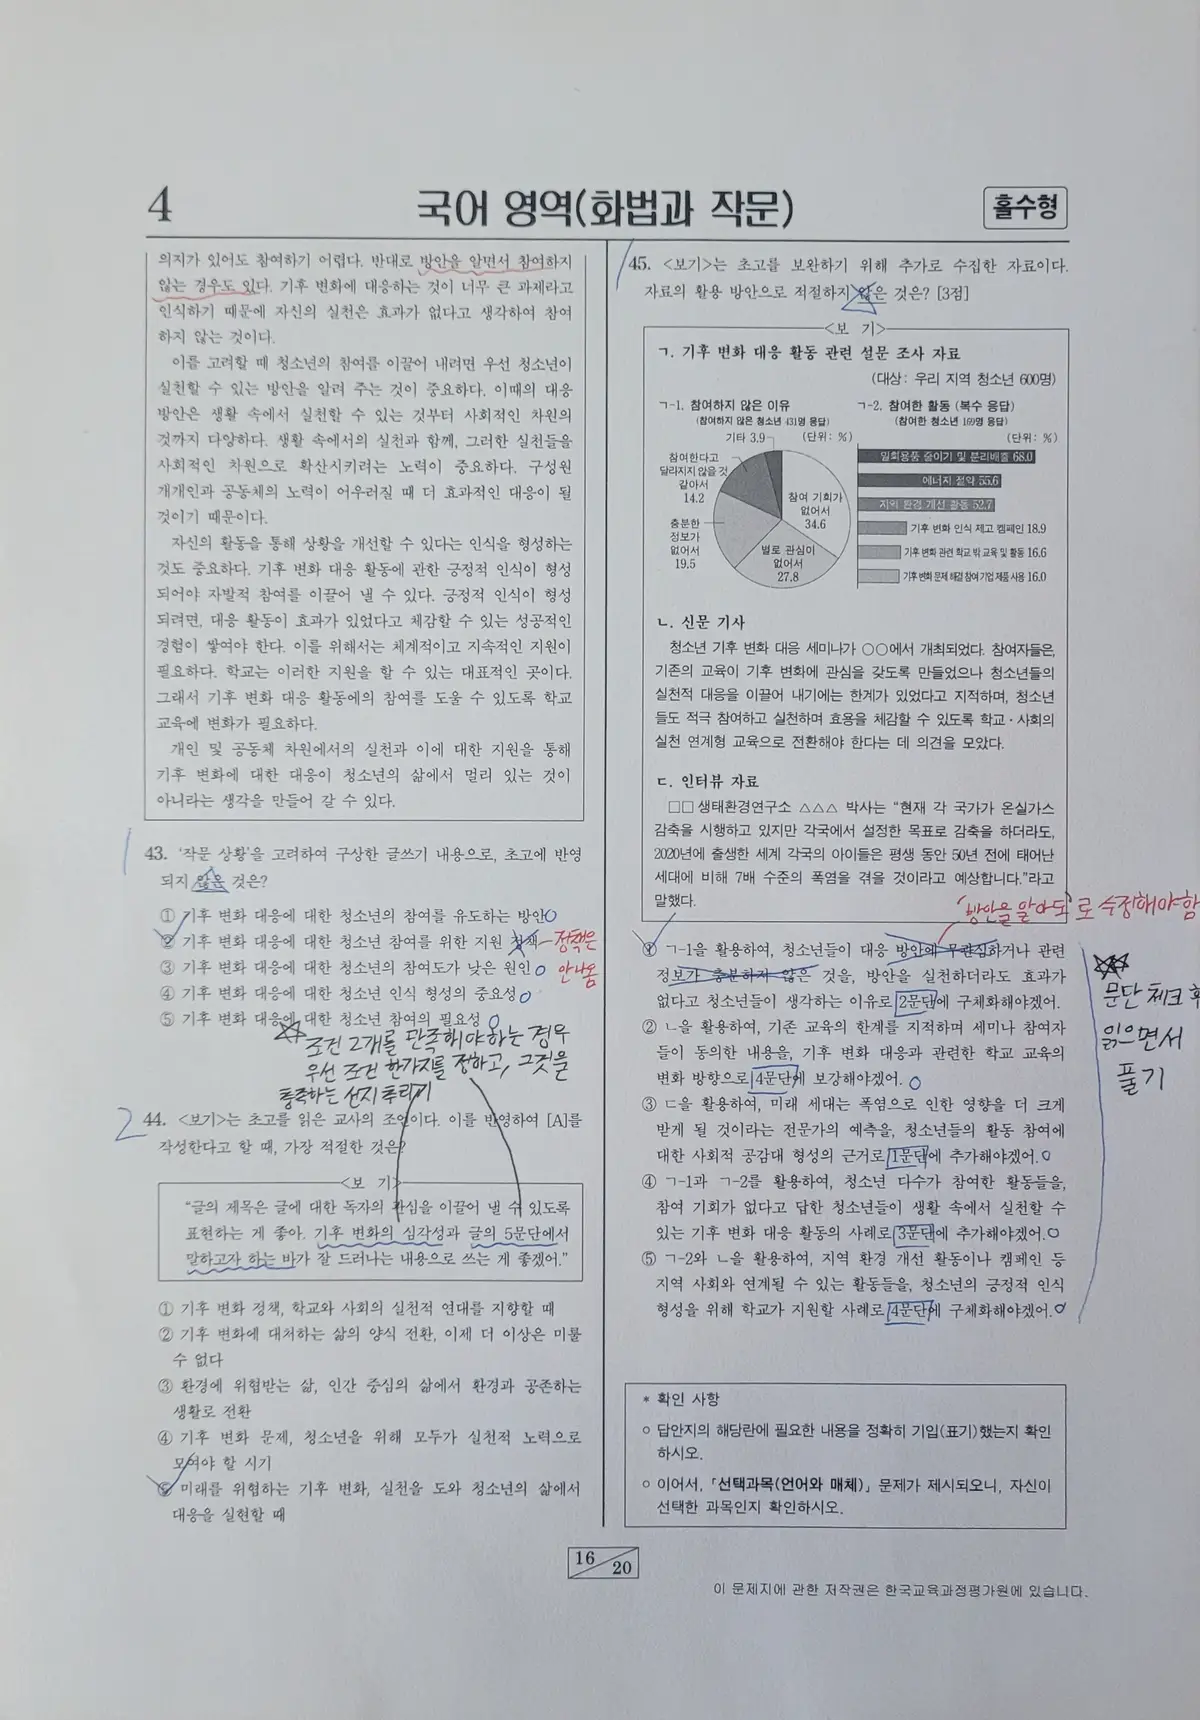 4
국어 영역(화법과 작문)
홀수형
의지가 있어도 참여하기 어렵다. 반대로 방안을 알면서 참여하지
않는 경우도 있다. 기후 변화에 대응하는 것이 너무 큰 과제라고
인식하기 때문에 자신의 실천은 효과가 없다고 생각하여 참여
하지 않는 것이다.
이를 고려할 때 청소년의 참여를 이끌어 내려면 우선 청소년이
실천할 수 있는 방안을 알려 주는 것이 중요하다. 이때의 대응
방안은 생활 속에서 실천할 수 있는 것부터 사회적인 차원의
것까지 다양하다. 생활 속에서의 실천과 함께, 그러한 실천들을
사회적인 차원으로 확산시키려는 노력이 중요하다. 구성원
개개인과 공동체의 노력이 어우러질 때 더 효과적인 대응이 될
것이기 때문이다.
자신의 활동을 통해 상황을 개선할 수 있다는 인식을 형성하는
것도 중요하다. 기후 변화 대응 활동에 관한 긍정적 인식이 형성
되어야 자발적 참여를 이끌어 낼 수 있다. 긍정적 인식이 형성
되려면, 대응 활동이 효과가 있었다고 체감할 수 있는 성공적인
경험이 쌓여야 한다. 이를 위해서는 체계적이고 지속적인 지원이
필요하다. 학교는 이러한 지원을 할 수 있는 대표적인 곳이다.
그래서 기후 변화 대응 활동에의 참여를 도울 수 있도록 학교
교육에 변화가 필요하다.
개인 및 공동체 차원에서의 실천과 이에 대한 지원을 통해
기후 변화에 대한 대응이 청소년의 삶에서 멀리 있는 것이
아니라는 생각을 만들어 갈 수 있다.
1
43. '작문 상황'을 고려하여 구상한 글쓰기 내용으로, 초고에 반영
되지 않은 것은?
① 기후 변화 대응에 대한 청소년의 참여를 유도하는 방안
② 기후 변화 대응에 대한 청소년 참여를 위한 지원 정책 - 정책은
③ 기후 변화 대응에 대한 청소년의 참여도가 낮은 원인 안나옴
④ 기후 변화 대응에 대한 청소년 인식 형성의 중요성
⑤ 기후 변화 대응에 대한 청소년 참여의 필요성
조건 2개를 만족해야하는 경우
우선 조건 한가지를 정하고, 그것을
충족하는 선지 추리기
2
44. <보기>는 초고를 읽은 교사의 조언이다. 이를 반영하여 [A]를
작성한다고 할 때, 가장 적절한 것은?
<보 기>
"글의 제목은 글에 대한 독자의 관심을 이끌어 낼 수 있도록
표현하는 게 좋아. 기후 변화의 심각성과 글의 5문단에서
말하고자 하는 바가 잘 드러나는 내용으로 쓰는 게 좋겠어."
① 기후 변화 정책, 학교와 사회의 실천적 연대를 지향할 때
② 기후 변화에 대처하는 삶의 양식 전환, 이제 더 이상은 미룰
수 없다
③ 환경에 위협받는 삶, 인간 중심의 삶에서 환경과 공존하는
생활로 전환
④ 기후 변화 문제, 청소년을 위해 모두가 실천적 노력으로
모여야 할 시기
⑤ 미래를 위협하는 기후 변화, 실천을 도와 청소년의 삶에서
대응을 실현할 때
45. <보기>는 초고를 보완하기 위해 추가로 수집한 자료이다.
자료의 활용 방안으로 적절하지 않은 것은? [3점]
<보 기>
ㄱ. 기후 변화 대응 활동 관련 설문 조사 자료
(대상: 우리 지역 청소년 600명)
ㄱ-1. 참여하지 않은 이유
(참여하지 않은 청소년 431명 응답)
(단위: %)
기타 3.9
참여한다고
달라지지 않을 것
같아서
14.2
충분한
정보가
없어서
19.5
참여 기회가
없어서
34.6
별로 관심이
없어서
27.8
ㄱ-2. 참여한 활동 (복수 응답)
(참여한 청소년 169명 응답)
(단위: %)
일회용품 줄이기 및 분리배출 68.0
에너지 절약 55.6
지역 환경 개선 활동 52.7
기후 변화 인식 제고 캠페인 18.9
기후 변화 관련 학교 밖 교육 및 활동 16.6
기후 변화 문제 해결 참여 기업 제품 사용 16.0
ㄴ. 신문 기사
청소년 기후 변화 대응 세미나가 ○○에서 개최되었다. 참여자들은,
기존의 교육이 기후 변화에 관심을 갖도록 만들었으나 청소년들의
실천적 대응을 이끌어 내기에는 한계가 있었다고 지적하며, 청소년
들도 적극 참여하고 실천하며 효용을 체감할 수 있도록 학교·사회의
실천 연계형 교육으로 전환해야 한다는 데 의견을 모았다.
ㄷ. 인터뷰 자료
□□생태환경연구소 △△△ 박사는 "현재 각 국가가 온실가스
감축을 시행하고 있지만 각국에서 설정한 목표로 감축을 하더라도,
2020년에 출생한 세계 각국의 아이들은 평생 동안 50년 전에 태어난
세대에 비해 7배 수준의 폭염을 겪을 것이라고 예상합니다."라고
말했다.
'방안을 알아도'로 수정해야함
① ㄱ-1을 활용하여, 청소년들이 대응 방안에 무관심하거나 관련
정보가 충분하지 않은 것을, 방안을 실천하더라도 효과가
없다고 청소년들이 생각하는 이유로 2문단에 구체화해야겠어.
② ㄴ을 활용하여, 기존 교육의 한계를 지적하며 세미나 참여자
들이 동의한 내용을, 기후 변화 대응과 관련한 학교 교육의
변화 방향으로 4문단에 보강해야겠어.
③ ㄷ을 활용하여, 미래 세대는 폭염으로 인한 영향을 더 크게
받게 될 것이라는 전문가의 예측을, 청소년들의 활동 참여에
대한 사회적 공감대 형성의 근거로 1문단에 추가해야겠어.
④ ㄱ-1과 ㄱ-2를 활용하여, 청소년 다수가 참여한 활동들을,
참여 기회가 없다고 답한 청소년들이 생활 속에서 실천할 수
있는 기후 변화 대응 활동의 사례로 3문단에 추가해야겠어.
⑤ ㄱ-2와 ㄴ을 활용하여, 지역 환경 개선 활동이나 캠페인 등
지역 사회와 연계될 수 있는 활동들을, 청소년의 긍정적 인식
형성을 위해 학교가 지원할 사례로 4문단에 구체화해야겠어.
문단 체크
읽으면서
풀기
* 확인 사항
○ 답안지의 해당란에 필요한 내용을 정확히 기입(표기)했는지 확인
하시오.
○ 이어서, 「선택과목(언어와 매체)」 문제가 제시되오니, 자신이
선택한 과목인지 확인하시오.
16
20
이 문제지에 관한 저작권은 한국교육과정평가원에 있습니다.